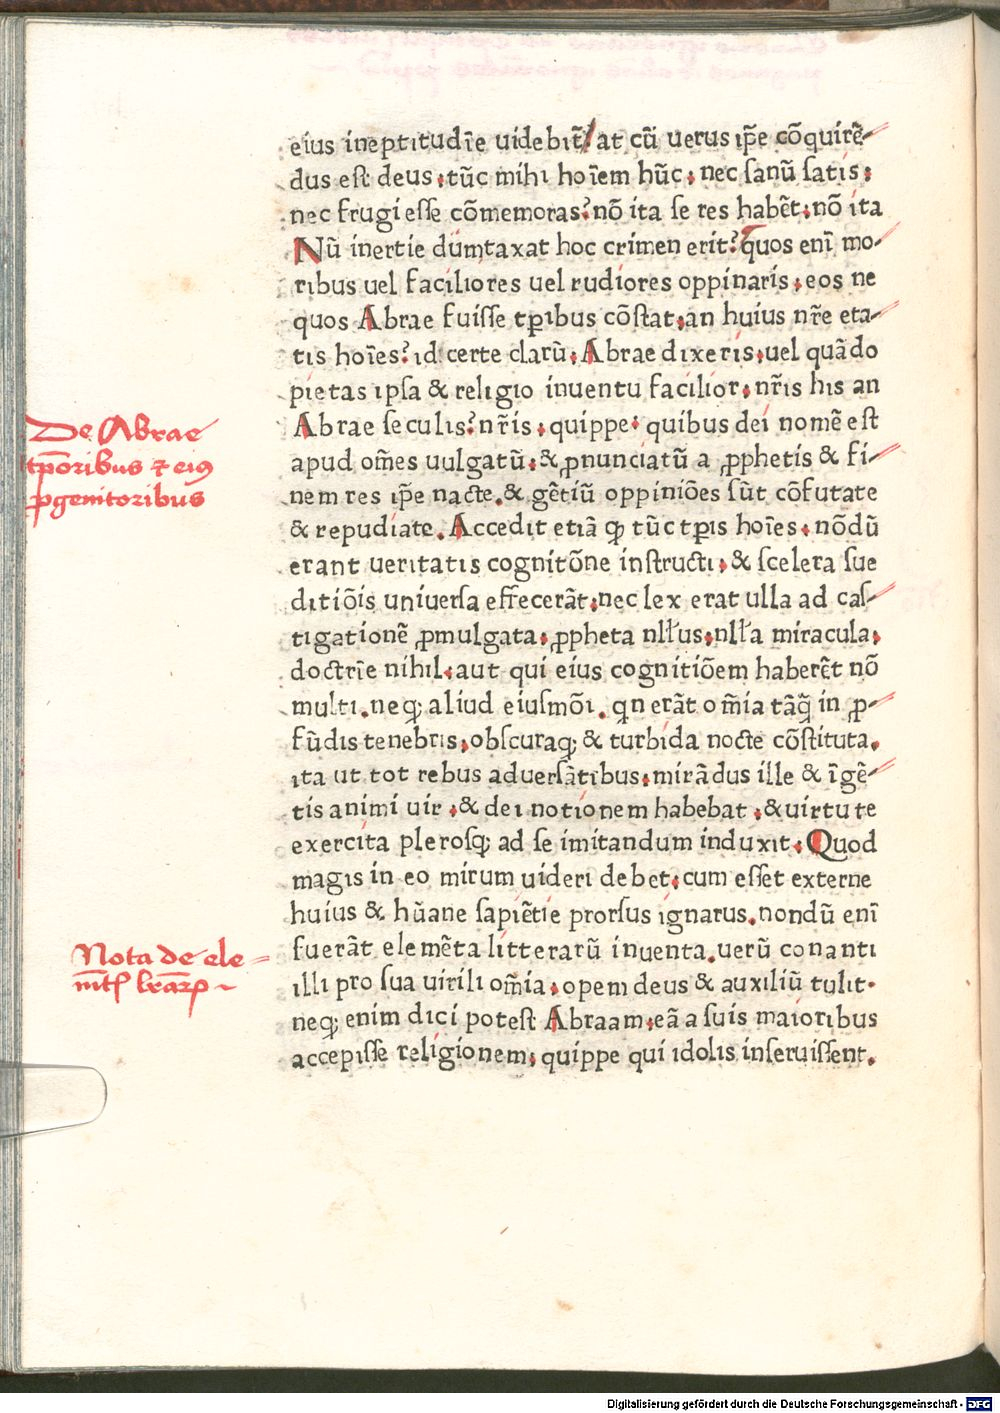 eius ineptitudīe uidebit̄ / at cū uerus ip̄e cōquirē-
dus est deus, tūc mihi hoīem hūc, nec sanū satis:
nec frugi esse cōmemoras? nō ita se res habēt, nō ita
Nū inertie dumtaxat hoc crimen erit? quos enī mo-
ribus uel faciliores uel rudiores oppinaris, eos ne
quos Abrae fuisse tꝑibus cōstat, an huius nr̄e eta-
tis hoīes? id certe clarū, Abrae dixeris, uel quādo
pietas ipsa & religio inuentu facilior, nr̄is his an
Abrae seculis? nr̄is, quippe, quibus dei nomē est
apud om̄es uulgatū, & ꝓnunciatū a ꝓphetis & fi-
nem res ip̄e nacte, & gētiū oppiniōes sūt cōfutate
& repudiate. Accedit etiā ꝙ tūc tꝑis hoīes, nōdū
erant ueritatis cognitōne instructi, & scelera sue
ditiōis uniuersa effecerāt, nec lex erat ulla ad cas-
tigationē ꝓmulgata, ꝓpheta nll̄us, nll̄a miracula,
doctrīe nihil, aut qui eius cognitiōem haberēt nō
multi. neqꝫ aliud eiusmōi. qn erāt om̄ia tāꝗ̄ in ꝓ-
fūdis tenebris, obscuraqꝫ & turbida nocte cōstituta,
ita ut tot rebus aduersātibus, mirādus ille & īgē-
tis animi uir, & dei notionem habebat, & uirtute
exercita plerosqꝫ ad se imitandum induxit, Quod
magis in eo mirum uideri debet, cum esset externe
huius & hūane sapiētie prorsus ignarus. nondū enī
fuerāt elemēta litterarū inuenta. uerū conanti
illi pro sua uirili om̄ia, opem deus & auxiliū tulit.
neqꝫ enim dici potest Abraam, eā a suis maioribus
accepisse religionem, quippe qui idolis inseruissent.
De Abrae
tꝑōribus ⁊ eiꝰ
ꝓgenitoribus
Nota de ele-
mt̄ꝭ lr̄aꝝ
Digitalisierung gefördert durch die Deutsche Forschungsgemeinschaft - DFG